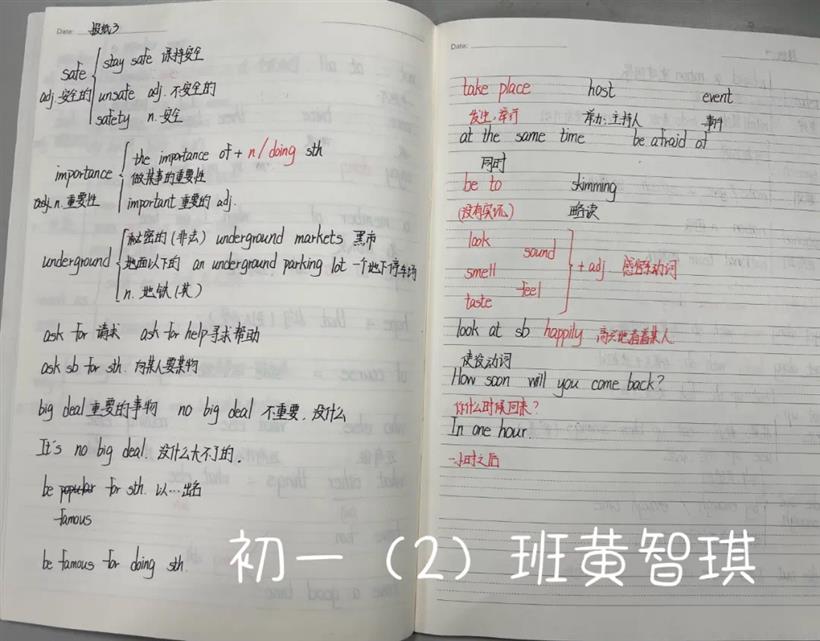 Date: 报纸3
safe
adj. 安全的
stay safe 保持安全
unsafe adj. 不安全的
safety n. 安全
importance
n. 重要性
the importance of + n/doing sth
做某事的重要性
important 重要的 adj.
underground
秘密的(非法) underground markets 黑市
地面以下的 an underground parking lot 一个地下停车场
n. 地铁(英)
ask for 请求 ask for help 寻求帮助
ask sb for sth. 向某人要某物
big deal 重要的事物 no big deal 不重要,没什么
It's no big deal. 没什么大不了的。
be popular for sth. 以…出名
famous
be famous for doing sth.
Date:
take place host event
发生,举行 举办;主持人 事件
at the same time be afraid of
同时
be to skimming
略读
look
sound
smell
feel
taste
+ adj 感官系动词
look at sb happily 高兴地看着某人
使役动词
How soon will you come back?
你什么时候回来?
In one hour.
一小时之后
初一(2)班黄智琪